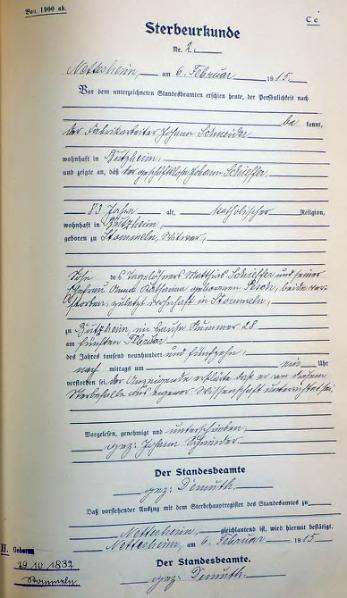 Von 1900 ab.
C c
Sterbeurkunde
Nr. 2.
Nettesheim, am 6. Februar 1915.
Vor dem unterzeichneten Standesbeamten erschien heute, der Persönlichkeit nach
be kannt,
der Fabrikarbeiter Johann Schneider,
wohnhaft in Butzheim,
und zeigte an, daß der geschäftslose Johann Schieffer,
83 Jahre alt, katholischer Religion,
wohnhaft in Butzheim,
geboren zu Stommeln, Witwer,
Sohn des Tagelöhners Matthias Schieffer und seiner
Ehefrau Anna Katharina geborenen, beide ver-
storben, zuletzt wohnhaft in Stommeln,
zu Butzheim, im Hause Nummer 28
am fünften Februar
des Jahres tausend neunhundert und fünfzehn,
nach mittags um Uhr
verstorben sei. der Anzeigende erklärte daß er von diesem
Sterbefalle aus eigener Wissenschaft unterrichtet sei.
Vorgelesen, genehmigt und unterschrieben
gez: Johann Schneider
Der Standesbeamte
gez: Dimuth.
Daß vorstehender Auszug mit dem Sterbehauptregister des Standesamtes zu
Nettesheim, gleichlautend ist, wird hiermit bestätigt.
Nettesheim, am 6. Februar 1915.
Der Standesbeamte.
gez: Dimuth.
H. Geboren
29.10.1832
Stommeln